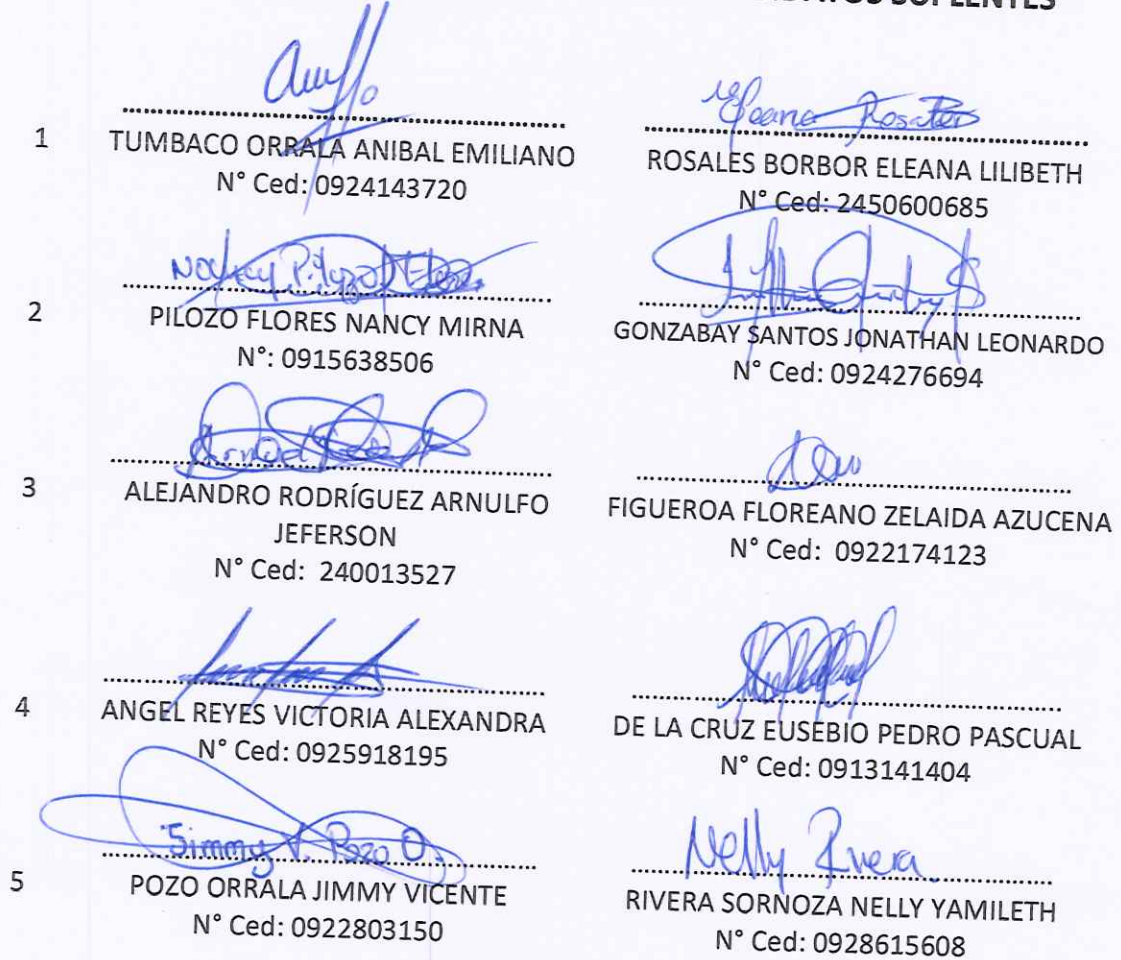 SUPLENTES
1
TUMBACO ORRALA ANIBAL EMILIANO
N° Ced: 0924143720
Eleana Rosales
ROSALES BORBOR ELEANA LILIBETH
N° Ced: 2450600685
Nancy Pilozo Flores
2
PILOZO FLORES NANCY MIRNA
N°: 0915638506
GONZABAY SANTOS JONATHAN LEONARDO
N° Ced: 0924276694
3
ALEJANDRO RODRÍGUEZ ARNULFO
JEFERSON
N° Ced: 240013527
FIGUEROA FLOREANO ZELAIDA AZUCENA
N° Ced: 0922174123
4
ANGEL REYES VICTORIA ALEXANDRA
N° Ced: 0925918195
DE LA CRUZ EUSEBIO PEDRO PASCUAL
N° Ced: 0913141404
Jimmy V. Pozo O.
5
POZO ORRALA JIMMY VICENTE
N° Ced: 0922803150
Nelly Rivera
RIVERA SORNOZA NELLY YAMILETH
N° Ced: 0928615608